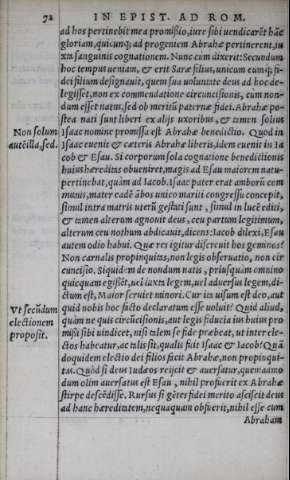 72 IN EPIST. AD ROM.
ad hos pertinebit mea promissio, iure sibi uendicarēt hāc
gloriam, quicunq; ad progentem Abrahæ pertinerent, iu
xta sanguinis cognationem. Nunc cum dixerit: Secundum
hoc tempus ueniam, & erit Saræ filius, unicum eumq; fi-
dei filium designauit, quem sua uoluntate deus ad hoc de-
legisset, non ex commendatione circuncisionis, cum non-
dum esset natus, sed ob meritū paternæ fidei. Abrahæ po-
stea nati sunt liberi ex alijs uxoribus, & tamen solius
Isaac nomine promissa est Abrahæ benedictio. Quod in
Non solum
autē illa, sed.
Isaac euenit & cæteris Abrahæ liberis, idem euenit in Ia
cob & Esau. Si corporum sola cognatione benedictionis
huius hæreditas obueniret, magis ad Esau maiorem natu
pertinebat, quàm ad Iacob. Isaac pater erat amborū com
munis, mater eadē ābos unico mariti congressu concepit,
simul intra matris uterū gestati sunt, simul in lucē editi,
& tamen alterum agnouit deus, ceu partum legitimum,
alterum ceu nothum abdicauit, dicens: Iacob dilexi, Esau
autem odio habui. Quæ res igitur discreuit hos geminos?
Non carnalis propinquitas, non legis obseruatio, non cir
cuncisio. Siquidem nondum natis, priusquàm omnino
quicquam egissēt, uel iuxta legem, uel aduersus legem, di-
ctum est, Maior seruiet minori. Cur ita uisum est deo, aut
quid nobis hoc facto declaratum esse uoluit? Quid aliud,
Vt secūdum
electionem
proposit.
quàm ne quis circūcisionis, aut legis fiducia huius pro
missi sibi uindicet, nisi talem se fide præbeat, ut inter ele-
ctos habeatur, ac talis sit, qualis fuit Isaac & Iacob? Quā
doquidem electio dei filios facit Abrahæ, non propinqui-
tas. Quòd si deus Iudæos reijcit & auersatur, quemadmo
dum olim auersatus est Esau, nihil profuerit ex Abrahæ
stirpe descēdisse. Rursus si gētes fidei merito asciscit deus
ad hanc hæreditatem, nequaquam obfuerit, nihil esse cum
Abraham